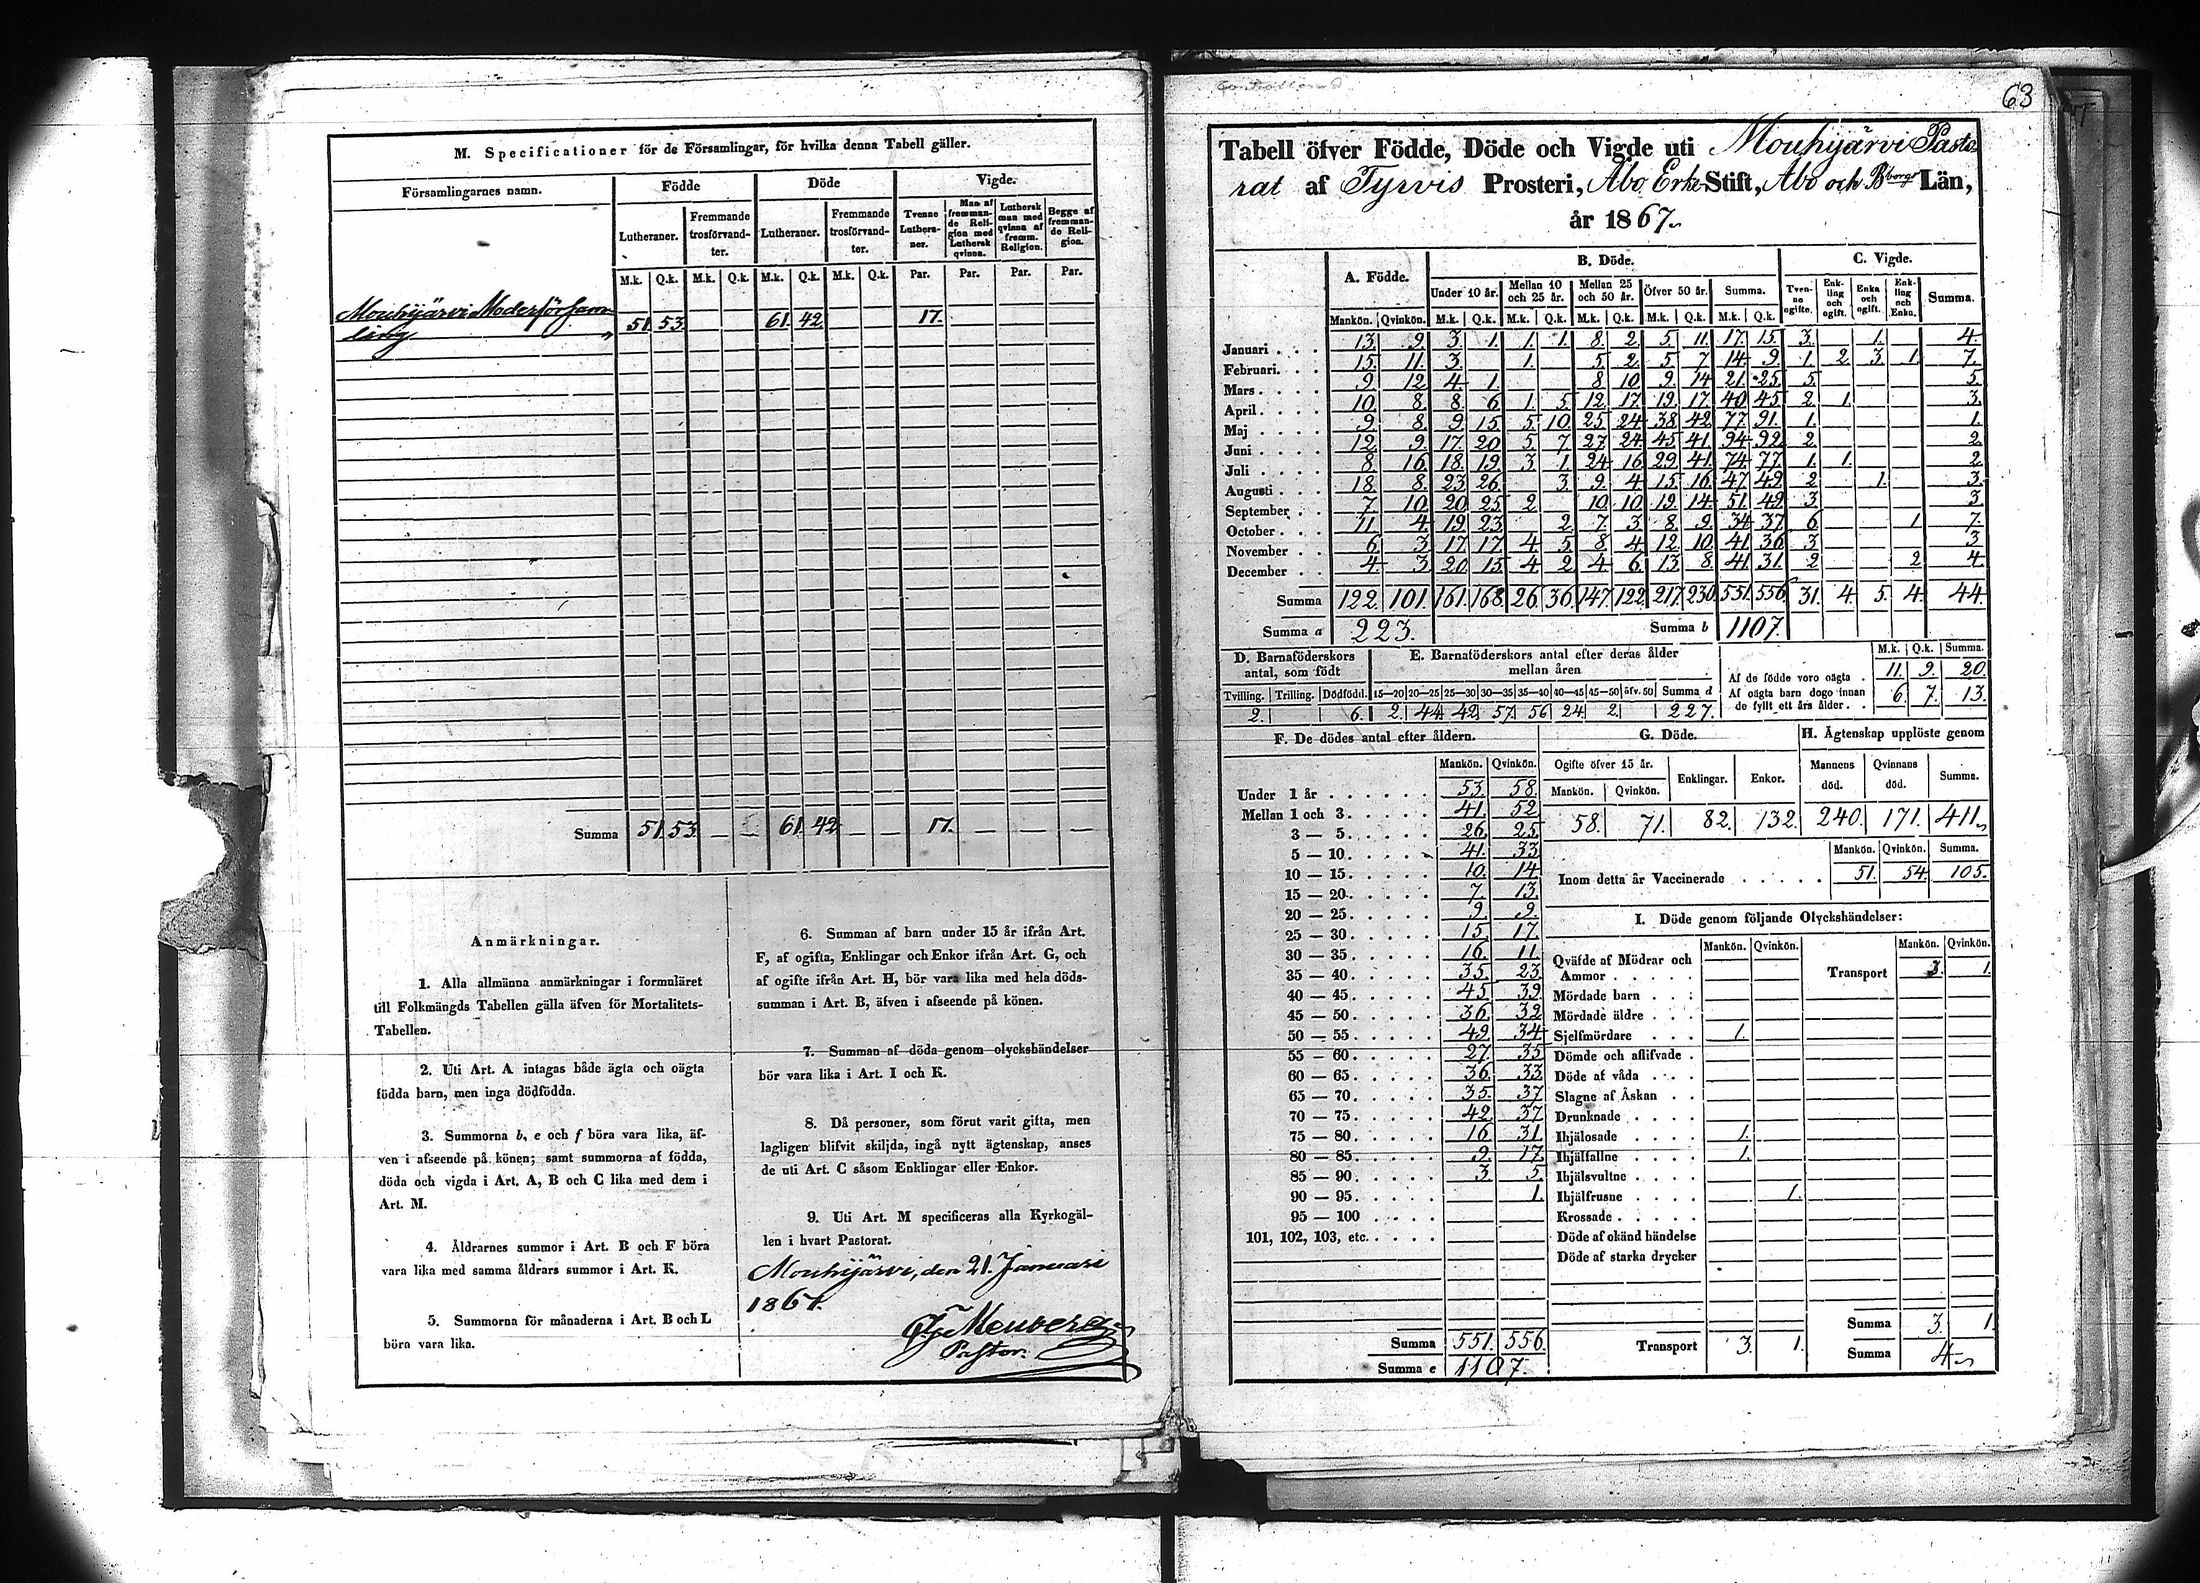 M. Specificationer för de Församlingar, för hvilka denna Tabell gäller.
Församlingarnes namn. Födde Döde Vigde.
Lutheraner. Fremmande trosförvandter. Lutheraner. Fremmande trosförvandter. Tvenne Lutheraner. Man af fremmande Religion med Luthersk qvinna. Luthersk man med qvinna af fremm. Religion. Begge af fremmande Religion.
M.k. Q.k. M.k. Q.k. M.k. Q.k. M.k. Q.k. Par. Par. Par. Par.
Mouhijärvi Moderförsam
ling 51. 53. 61. 42. 17.
Summa 51. 53. — — 61. 42 — — 17. — — —
Anmärkningar.
1. Alla allmänna anmärkningar i formuläret
till Folkmängds Tabellen gälla äfven för Mortalitets-
Tabellen.
2. Uti Art. A intagas både ägta och oägta
födda barn, men inga dödfödda.
3. Summorna b, e och f böra vara lika, äf-
ven i afseende på könen; samt summorna af födda,
döda och vigda i Art. A, B och C lika med dem i
Art. M.
4. Åldrarnes summor i Art. B och F böra
vara lika med samma åldrars summor i Art. K.
5. Summorna för månaderna i Art. B och L
böra vara lika.
6. Summan af barn under 15 år ifrån Art.
F, af ogifta, Enklingar och Enkor ifrån Art. G, och
af ogifte ifrån Art. H, bör vara lika med hela döds-
summan i Art. B, äfven i afseende på könen.
7. Summan af döda genom olyckshändelser
bör vara lika i Art. I och K.
8. Då personer, som förut varit gifta, men
lagligen blifvit skiljda, ingå nytt ägtenskap, anses
de uti Art. C såsom Enklingar eller Enkor.
9. Uti Art. M specificeras alla Kyrkogäl-
len i hvart Pastorat.
Mouhijärvi, den 21. Januari
1867.
Pastor.
63
Tabell öfver Födde, Döde och Vigde uti Mouhijärvi Pasto
rat af Tyrvis Prosteri, Åbo Erke Stift, Åbo och Bborgs Län,
år 1867.
A. Födde. B. Döde. C. Vigde.
Under 10 år. Mellan 10 och 25 år. Mellan 25 och 50 år. Öfver 50 år. Summa. Tvenne ogifte. Enkling och ogift. Enka och ogift. Enkling och Enka. Summa.
Mankön. Qvinkön. M.k. Q.k. M.k. Q.k. M.k. Q.k. M.k. Q.k. M.k. Q.k.
Januari . . . 13. 9. 3. 1. 1. 1. 8. 2. 5. 11. 17. 15. 3. 1. 4.
Februari. . . 15. 11. 3. 1. 5. 2. 5. 7. 14. 9. 1. 2. 3. 1. 7.
Mars . . . . 9. 12. 4. 1. 8. 10. 9. 14. 21. 25. 5. 5.
April . . . . 10. 8. 8. 6. 1. 5. 12. 17. 19. 17. 40. 45. 2. 1. 3.
Maj . . . . 9. 8. 9. 15. 5. 10. 25. 24. 38. 42. 77. 91. 1. 1.
Juni . . . . 12. 9. 17. 20. 5. 7. 27. 24. 45. 41. 94. 92. 2. 2.
Juli . . . . 8. 16. 18. 19. 3. 1. 24. 16. 29. 41. 74. 77. 1. 1. 2.
Augusti . . . 18. 8. 23. 26. 3. 9. 4. 15. 16. 47. 49. 2. 1. 3.
September . . 7. 10. 20. 25. 2. 10. 10. 19. 14. 51. 49. 3. 3.
October . . . 11. 4. 19. 23. 2. 7. 3. 8. 9. 34. 37. 6. 1. 7.
November . . 6. 3. 17. 17. 4. 5. 8. 4. 12. 10. 41. 36. 3. 3.
December . . 4. 3. 20. 15. 4. 2. 4. 6. 13. 8. 41. 31. 2. 2. 4.
Summa 122. 101. 161. 168. 26. 36. 147. 122. 217. 230. 551. 556. 31. 4. 5. 4. 44.
Summa a 223. Summa b 1107.
D. Barnaföderskors antal, som födt E. Barnaföderskors antal efter deras ålder mellan åren
Tvilling. Trilling. Dödfödd. 15—20 20—25 25—30 30—35 35—40 40—45 45—50 öfv. 50 Summa d
2. 6. 2. 44. 42. 57. 56. 24. 2. 227.
M.k. Q.k. Summa.
Af de födde voro oägta . 11. 9. 20.
Af oägta barn dogo innan de fyllt ett års ålder. . 6. 7. 13.
F. De dödes antal efter åldern.
Mankön. Qvinkön.
Under 1 år . . . . . . 53. 58.
Mellan 1 och 3. . . . . 41. 52.
3 — 5. . . . . 26. 25.
5 — 10. . . . . 41. 33.
10 — 15. . . . . 10. 14.
15 — 20. . . . . 7. 13.
20 — 25. . . . . 9. 9.
25 — 30. . . . . 15. 17.
30 — 35. . . . . 16. 11.
35 — 40. . . . . 35. 23.
40 — 45. . . . . 45. 39.
45 — 50. . . . . 36. 32.
50 — 55. . . . . 49. 34.
55 — 60. . . . . 27. 35.
60 — 65. . . . . 36. 33.
65 — 70. . . . . 35. 37.
70 — 75. . . . . 42. 37.
75 — 80. . . . . 16. 31.
80 — 85. . . . . 9. 17.
85 — 90. . . . . 3. 5.
90 — 95. . . . . 1.
95 — 100 . . . .
101, 102, 103, etc. . . . .
Summa 551. 556.
Summa e 1107.
G. Döde. H. Ägtenskap upplöste genom
Ogifte öfver 15 år. Enklingar. Enkor. Mannens död. Qvinnans död. Summa.
Mankön. Qvinkön.
58. 71. 82. 132. 240. 171. 411.
Mankön. Qvinkön. Summa.
Inom detta år Vaccinerade . . . . . 51. 54. 105.
I. Döde genom följande Olyckshändelser:
Mankön. Qvinkön. Mankön. Qvinkön.
Qväfde af Mödrar och Ammor . . . . . Transport 3. 1.
Mördade barn . . .
Mördade äldre . . .
Sjelfmördare . . . 1.
Dömde och aflifvade .
Döde af våda . . .
Slagne af Åskan . .
Drunknade . . . .
Ihjälosade . . . . 1.
Ihjälfallne . . . . 1.
Ihjälsvultne . . . .
Ihjälfrusne . . . . 1.
Krossade . . . . .
Döde af okänd händelse
Döde af starka drycker
Summa 3. 1.
Transport 3. 1. Summa 4